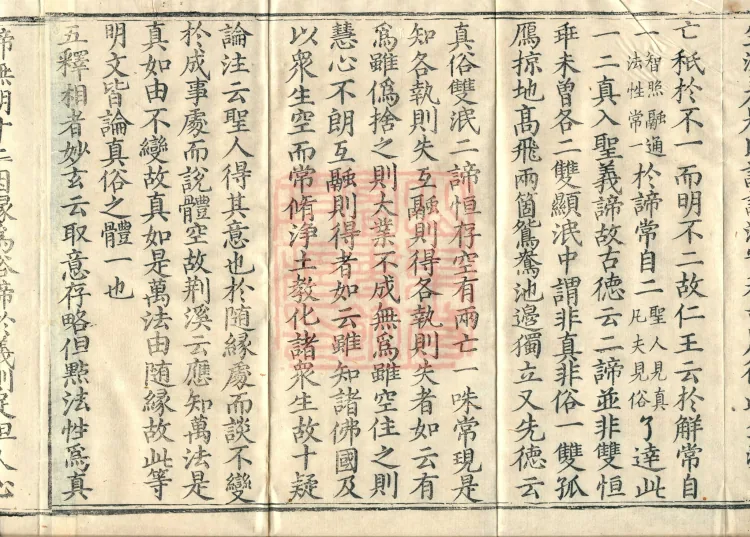 亡秖於不一而明不二故仁王云於解常自
一智照融通法性常一於諦常自二聖人見真凡夫見俗了達此
一二真入聖義諦故古德云二諦並非雙恒
乖未曽各二雙顯泯中謂非真非俗一雙孤
鴈掠地髙飛兩箇鴛鴦池邊獨立又先德云
真俗雙泯二諦恒存空有兩亡一味常現是
知各執則失互融則得各執則失者如云有
為雖偽捨之則大業不成無為雖空住之則
慧心不朗互融則得者如云雖知諸佛國及
以衆生空而常脩浄土教化諸衆生故十疑
論注云聖人得其意也於随緣處而談不變
於成事處而說體空故荆溪云應知萬法是
真如由不變故真如是萬法由随緣故此等
明文皆論真俗之體一也
五釋相者妙玄云取意存略但㸃法性為真
諦無明十二因緣為俗諦於義則足但人心